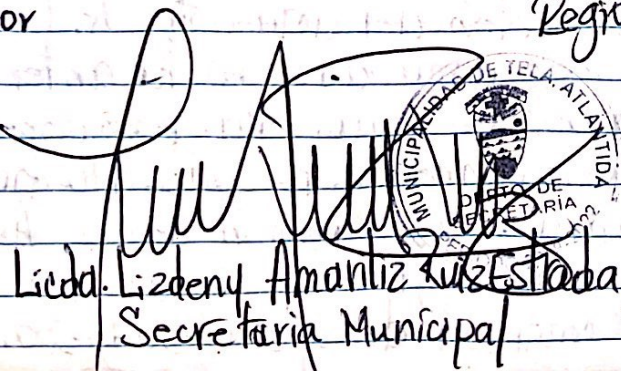 or
MUNICIPALIDAD DE TELA. ATLANTIDA
DEPTO. DE
SECRETARÍA
Licda. Lizdeny Amanliz Ruiz Estrada
Secretaria Municipal